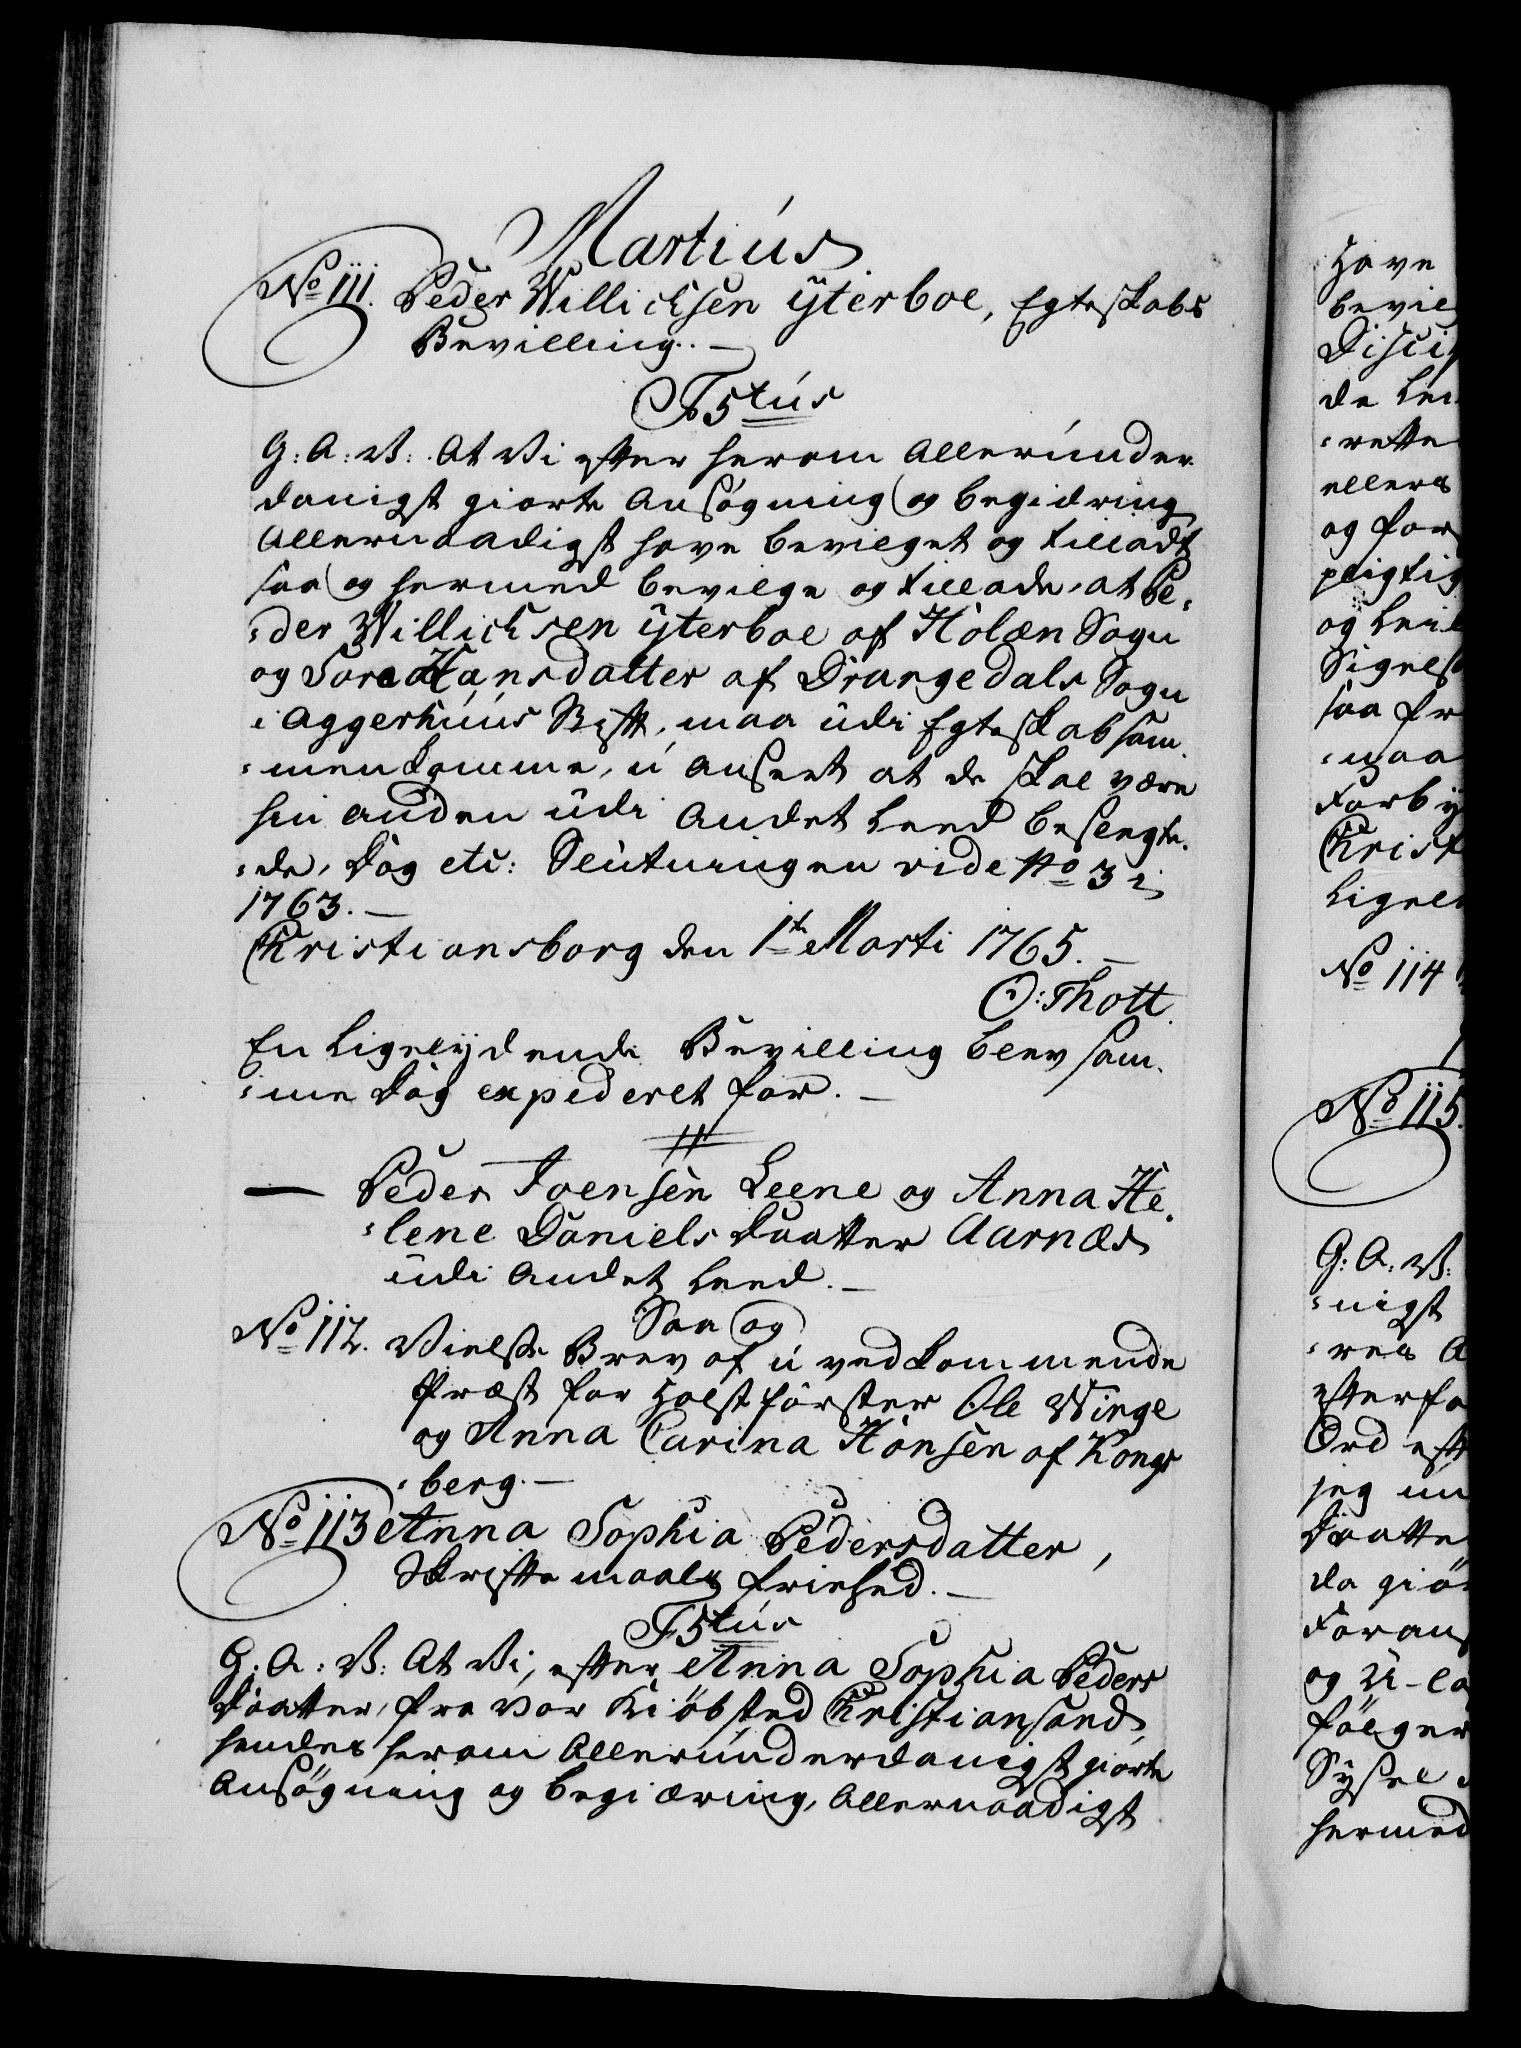 Martius
No 111. Peder Willichsen Ÿterboe, Egteskabs
Bevilling. —
F5tus
G: A: V: At Vi efter herom Allerunder
danigst giorte Ansøgning og begiæring
Allernaadigst have bevilget og tilladt
saa og hermed bevilge og tillade, at Pe-
der Willichsen ÿterboe af Holæn Sogn
og Sara Hansdatter af Drangedals Sogn
i Aggershuus Stift, maa udi Egteskab sam-
menkomme, u anseet at de skal være
hin anden udi Andet Leed besvogre-
de, Dog etc: Slutningen vide No 3 i
1763. —
Christiansborg den 1te Marti 1765. —
O: Thott.
En Ligelÿdende Bevilling blev sam-
me Dag expederet for. —
— Peder Joensen Leene og Anna He-
lene Daniels Daatter Aarnæs
udi Andet Leed. —
Saa og
No 112. Vielse Brev af u vedkommende
Præst for Holtzförster Ole Winge
og Anna Carina Hansen af Kongs
berg. —
No 113 Anna Sophia Pedersdatter,
Skriftemaals frihed. —
F5tus
G: A: V: At Vi, efter Anna Sophia Peders
Daatter, fra vor Kiöbsted Christiansand,
hendes herom Allerunderdanigst giorte
Ansøgning og begiæring, Allernaadigst
have
bevil
Disci
de Lei
rette
ellers
og for
pligtig
og Leil
Signels
saa fr
maa
Forbÿ
Christ
Ligele
No 114
No 115.
G: A: V:
nigst
res A
efterfo
Ord eft
jeg un
Daatte
da giö
Forans
og U-lo
følger
Sÿsel
hermed